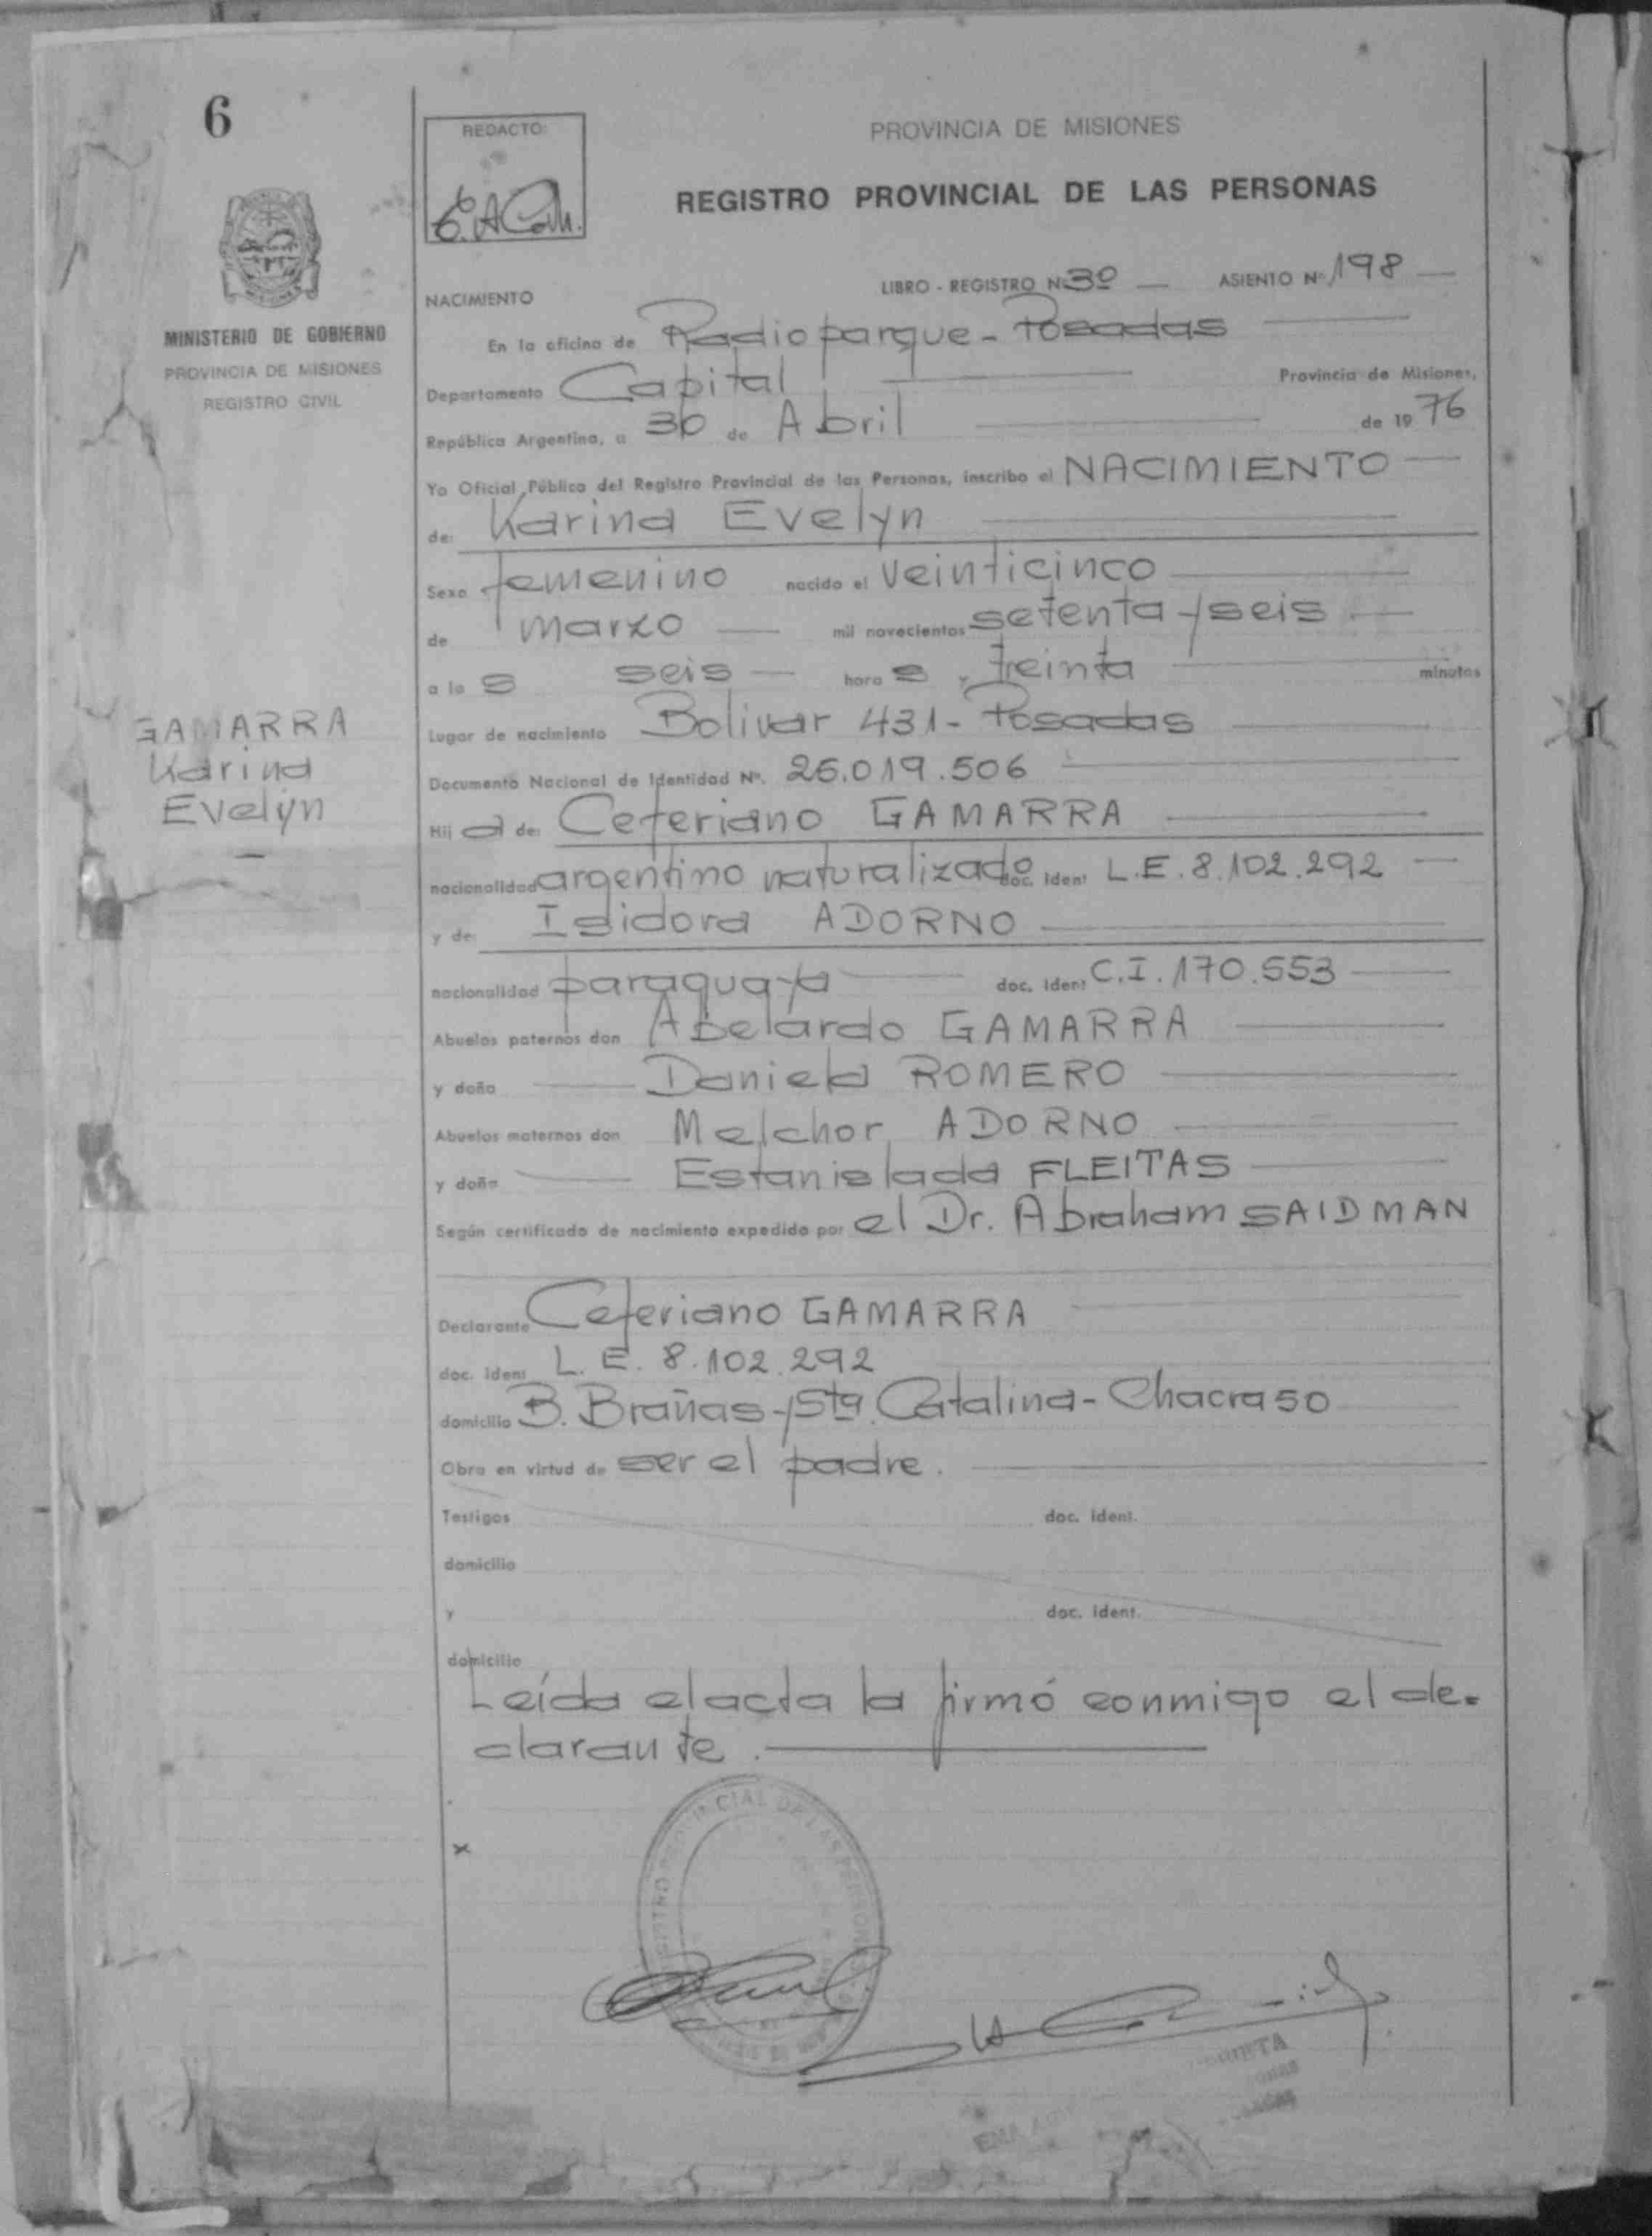 6
REDACTO:
PROVINCIA DE MISIONES
REGISTRO PROVINCIAL DE LAS PERSONAS
MINISTERIO DE GOBIERNO
PROVINCIA DE MISIONES
REGISTRO CIVIL
NACIMIENTO LIBRO - REGISTRO Nº 3º ASIENTO Nº 198
En la oficina de Radioparque - Posadas
Departamento Capital Provincia de Misiones,
República Argentina, a 30 de Abril de 1976
Yo Oficial Público del Registro Provincial de las Personas, inscribo el NACIMIENTO
de: Karina Evelyn
Sexo femenino nacido el veinticinco
de marzo mil novecientos setenta y seis
a las seis horas y treinta minutos
Lugar de nacimiento Bolivar 431 - Posadas
Documento Nacional de Identidad Nº. 25.019.506
GAMARRA
Karina
Evelyn
Hija de: Ceferiano GAMARRA
nacionalidad argentino naturalizado doc. ident L.E. 8.102.292
y de: Isidora ADORNO
nacionalidad paraguaya doc. ident C.I. 170.553
Abuelos paternos don Abelardo GAMARRA
y doña Daniela ROMERO
Abuelos maternos don Melchor ADORNO
y doña Estanislada FLEITAS
Según certificado de nacimiento expedido por el Dr. Abraham SAIDMAN
Declarante Ceferiano GAMARRA
doc. ident L.E. 8.102.292
domicilio B. Brañas y Sta. Catalina - Chacra 50
Obra en virtud de ser el padre.
Testigos doc. ident.
domicilio
y doc. ident.
domicilio
Leída el acta la firmó conmigo el de-
clarante.